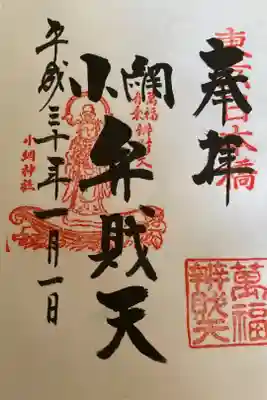 奉拝
東京日本橋
萬福
辨財天
小網
弁財天
萬福
小網神社
平成三十年一月一日